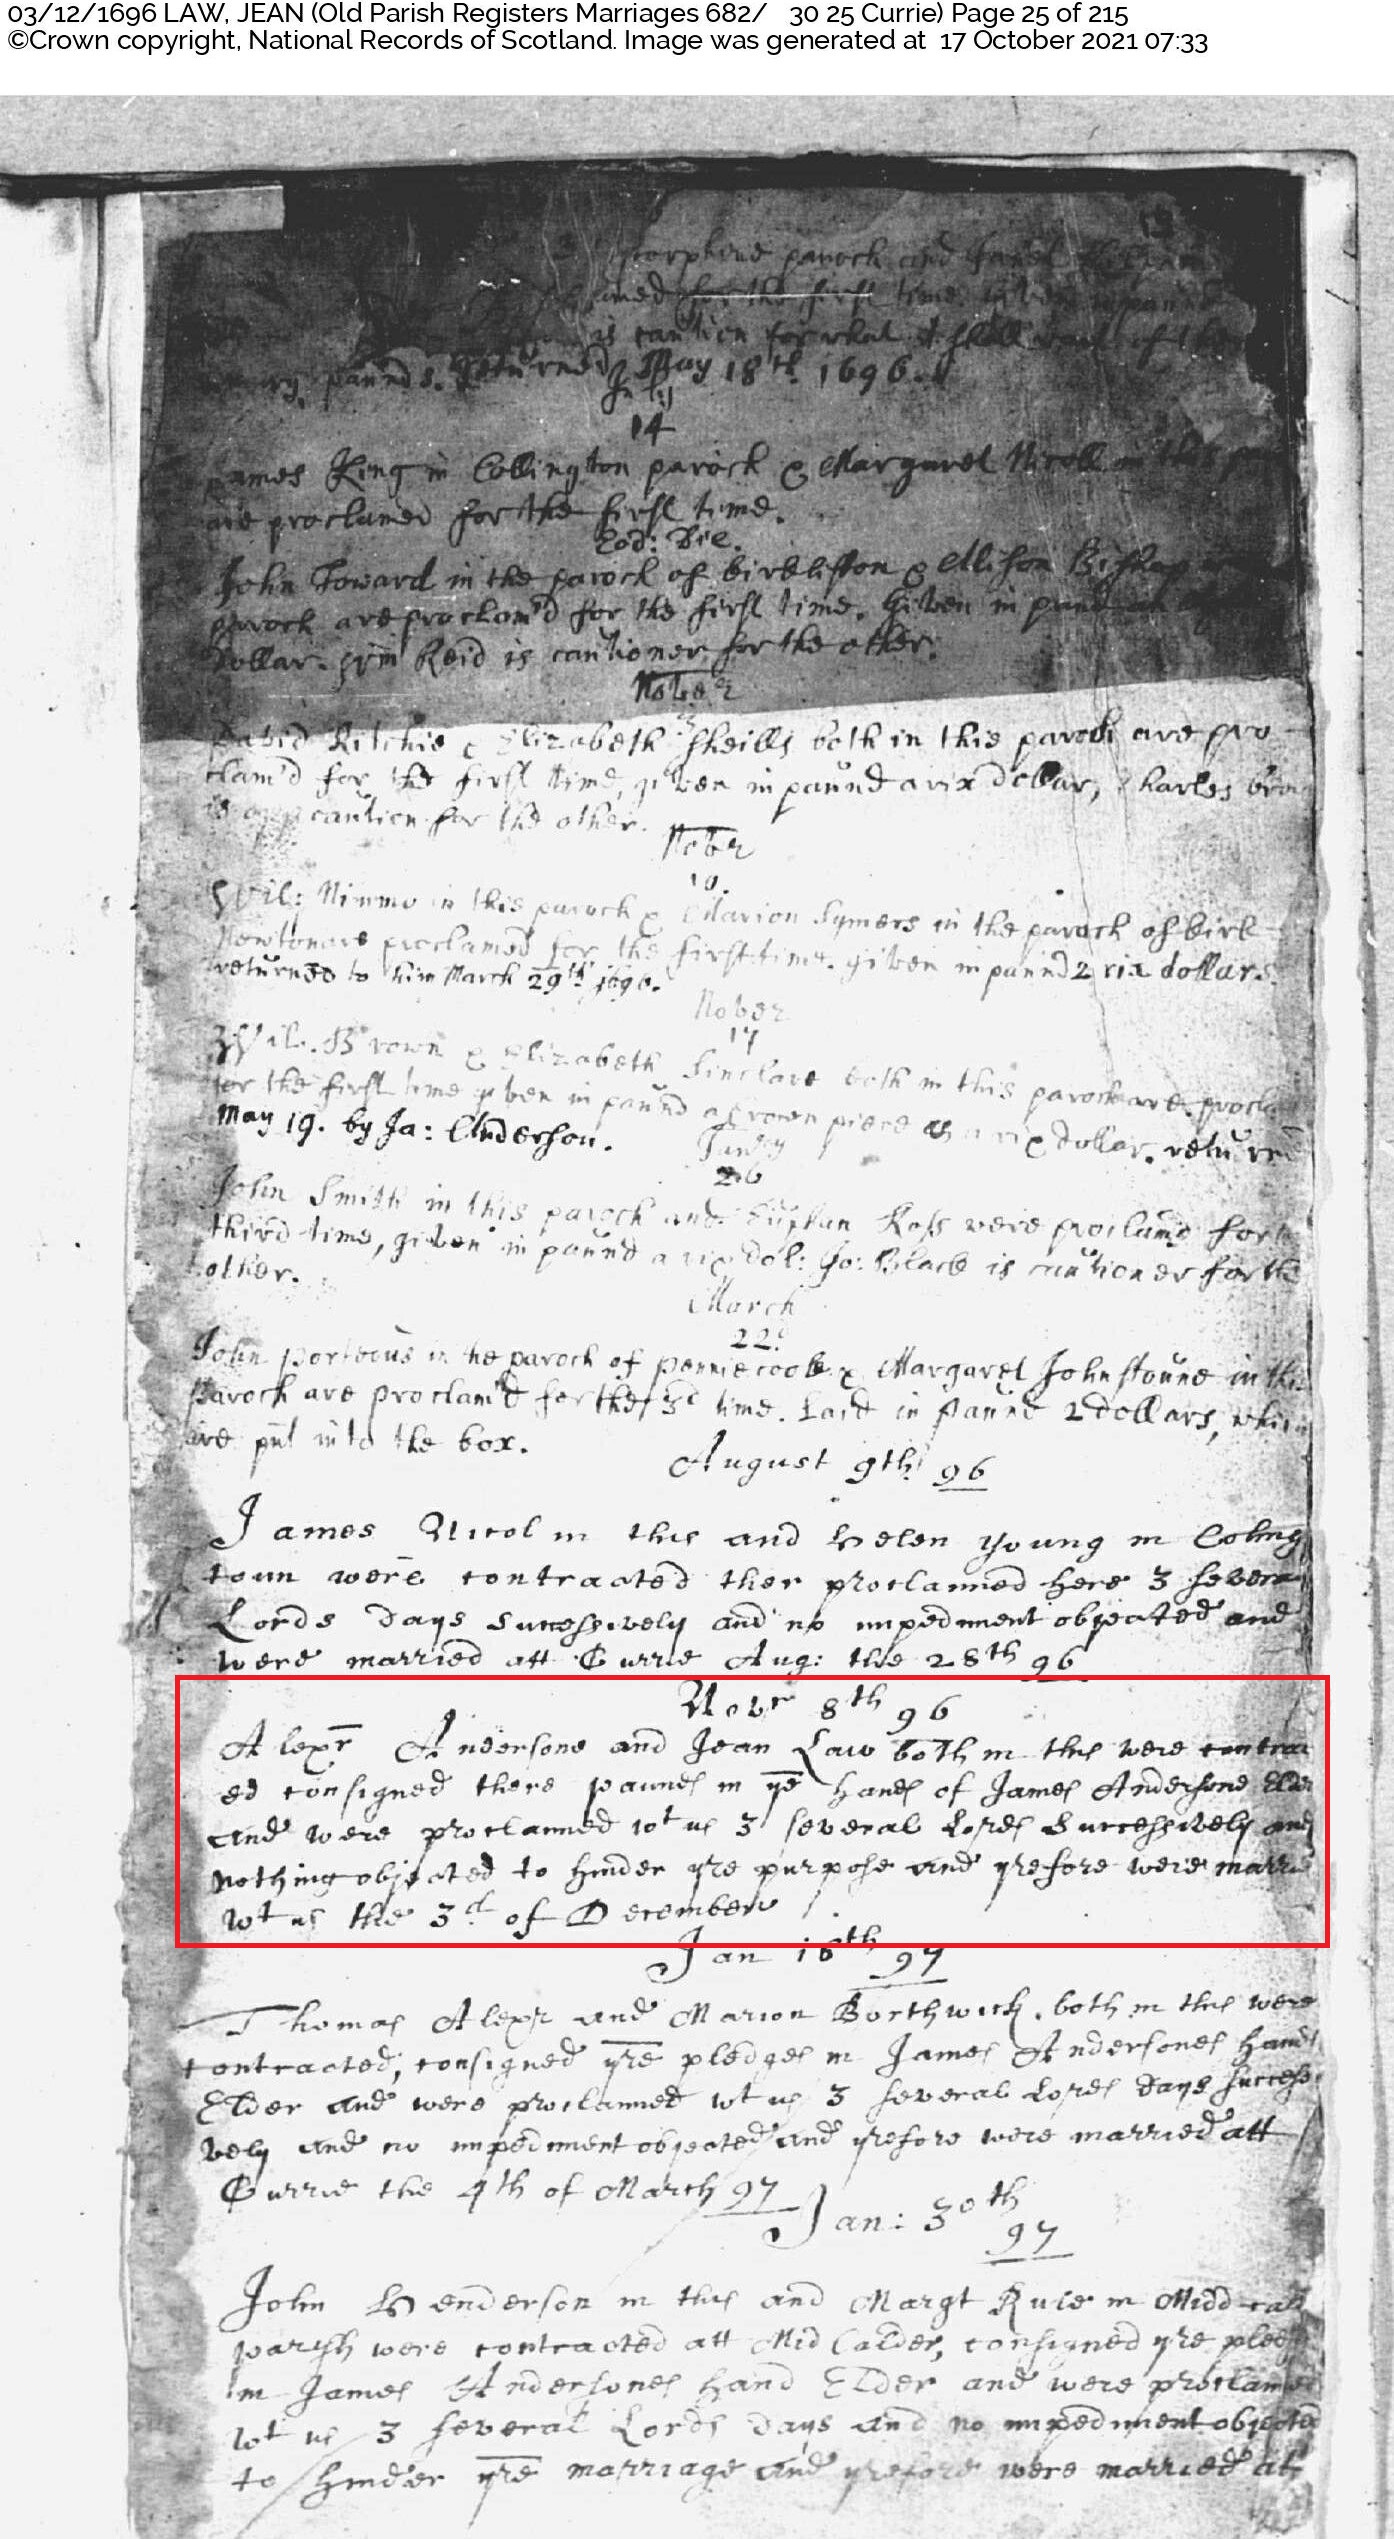 03/12/1696 LAW, JEAN (Old Parish Registers Marriages 682/ 30 25 Currie) Page 25 of 215
©Crown copyright, National Records of Scotland. Image was generated at 17 October 2021 07:33
parock and
for the first time.
is caution for what shall
paunds. Returned May 18th 1696.
July
14
James King in Collington parock & Margaret Nicoll in this
are proclamed for the first time.
Eod: Die.
John Howard in the parock of kirkliston & Allison Bishop
parock are proclam'd for the first time. Given in paund an
dollar. Reid is cautioner for the other.
Nober
David Ritchie & Elizabeth Sheills both in this parock are pro
clam'd for the first time, given in paund a rix dollar, Charles
is caution for the other.
Nober
10.
Wil: Nimmo in this parock & Marion Symers in the parock of kirk
Newton are proclamed for the first time. given in paund 2 rix dollars
returned to him March 29th 1696.
Nober
17
Wil. Brown & Elizabeth Sinclare both in this parock are procla
for the first time given in paund a crown piece as a rix dollar. return
May 19. by Ja: Anderson.
26
John Smith in this parock and Euphan Ross were proclamd for
third time, given in paund a rix dol: Jo: Black is cautioner for the
other.
March
22d
John porteous in the paroch of penniecook & Margaret Johnstoune in this
Parock are proclam'd for the 3d time. Laid in paund 2 dollars, which
are put into the box.
August 9th 96
James Nicol in this and Helen Young in Coling
toun were contracted ther proclaimed here 3 severa
Lords days Successively and no impediment objected and
were married att Currie Aug: the 28th 96
Novr 8th 96
Alexr Andersone and Jean Law both in this were contrac
ed consigned there paunds in ye hands of James Andersone Elder
and were proclaimed wt us 3 several Lords Successively and
nothing objected to hinder yre purpose and yrefore were marrie
wt us the 3d of December
Jan 16th 97
Thomas Alexr and Marion Borthwick both in this were
contracted, consigned yre pledges in James Andersones hands
Elder and were proclaimed wt us 3 several Lords days Success
vely and no impediment objected and yrefore were married att
Currie the 4th of March 97
Jan: 30th
97
John Henderson in this and Margt Rule in Midd cald
parish were contracted att Mid Calder, consigned yre pledg
in James Andersones hand Elder and were proclaimed
wt us 3 several Lords days and no impediment objected
to hinder yre marriage and yrefore were married at